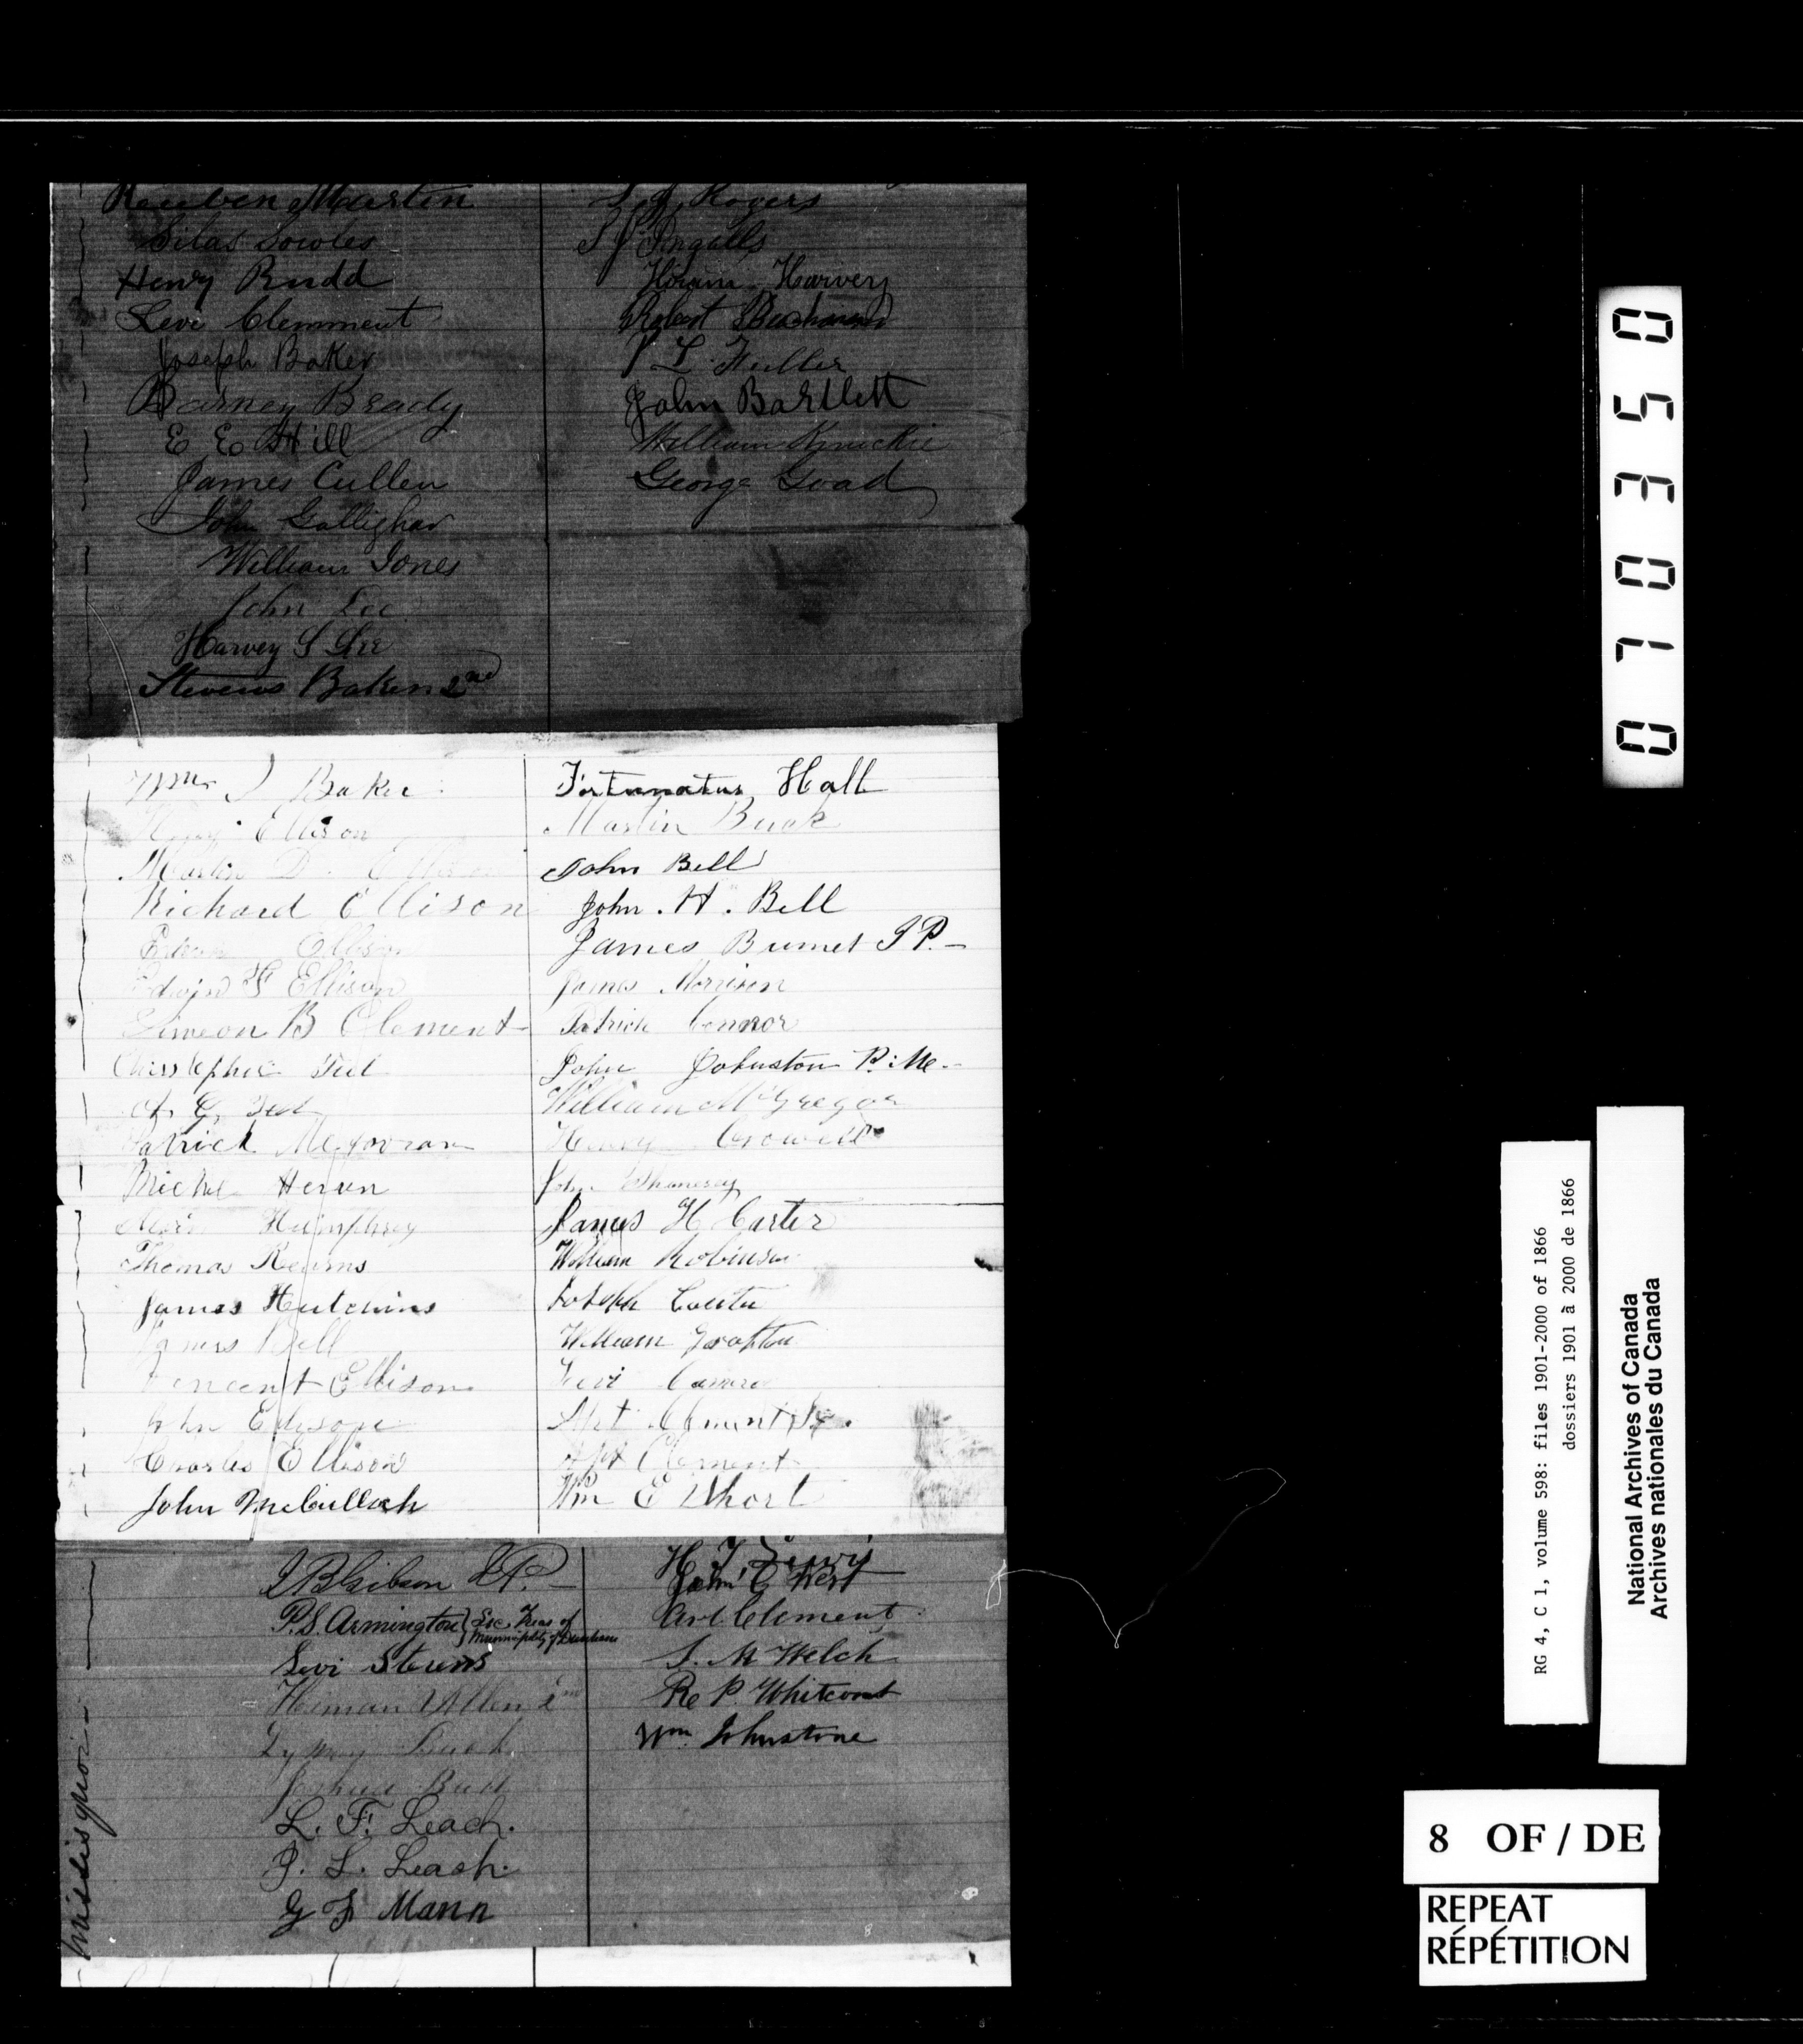 Reuben Martin
Silas Sowles
Henry Rudd
Levi Clemment
Joseph Baker
Barney Brady
E E Hill
James Cullen
John Gallighar
William Jones
John Lee
Harvey S Lee
Stevens Baker 2nd
Rogers
S J Ingalls
Hiram Harvey
Robert
L. Fuller
John Bartlett
William
George Goad
Wm J Baker
Ellison
Martin D. Ellison
Richard Ellison
Ellison
Edwin G Ellison
Simeon B Clement
Christopher Teel
Teel
Patrick McGovran
Michel Heren
Humphrey
Thomas Kearns
James Hutchins
James Bell
Vincent Ellison
John Edgson
Charles Ellison
John McCulloch
Fortunatus Hall
Martin Buck
John Bell
John . H . Bell
James Burnet J P. -
James Morrison
Patrick Connor
John Johnston P: Me -
William McGregor
Henry Crowell
John
James H Carter
William Robinson
Joseph
William Grafton
Levi
Clement
Clement
Wm E Short
I B Gibson J. P. -
P. S. Armington } Sec. Treas of Municiplity of Dunham
Levi Stevens
Heman Allen 2nd
Joshua Buck
L. F. Leach.
J. L. Leach.
G F Mann
H. F.
John C West
Art Clement
S. M Welch
Re P. Whitcomb
Wm Johnstone
Missisquoi
0 7 0 3 5 0
RG 4, C 1, volume 598: files 1901-2000 of 1866
dossiers 1901 à 2000 de 1866
National Archives of Canada
Archives nationales du Canada
8 OF / DE
REPEAT
RÉPÉTITION